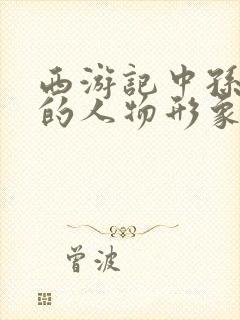 西游记中孙
的人物形象
曾波